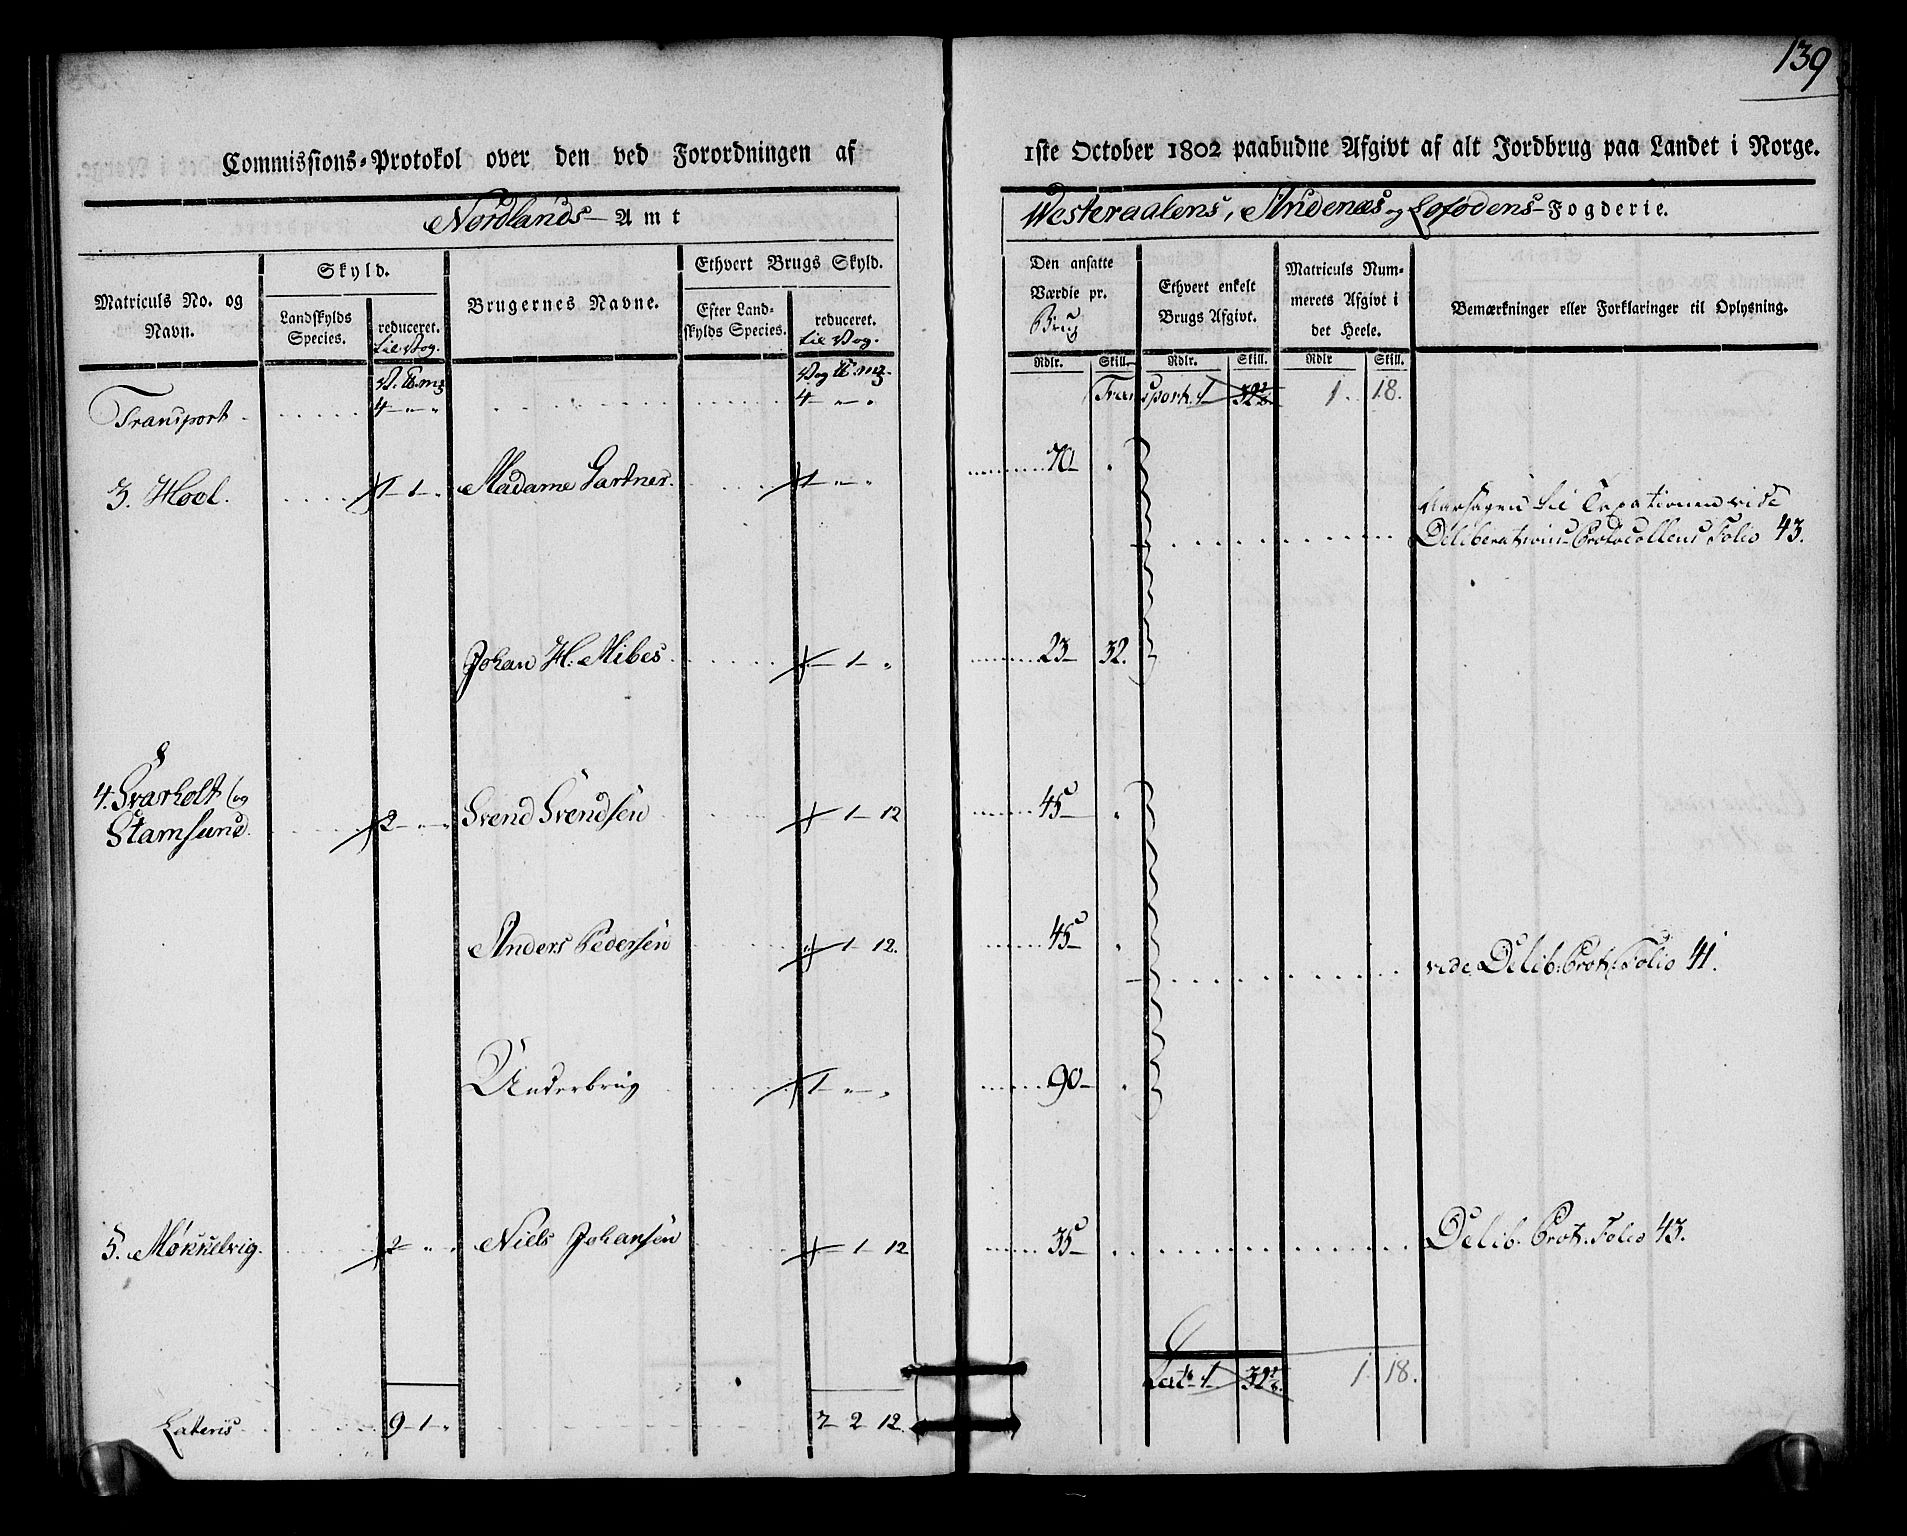 139
Commissions-Protokol over den ved Forordningen af 1ste October 1802 paabudne Afgivt af alt Jordbrug paa Landet i Norge.
Nordlands Amt
Westeraalens, Andenæs og Lofodens Fogderie.
Matriculs No. og Navn.
Skyld.
Landskylds Species.
reduceret.
til Vog.
Brugernes Navne.
Ethvert Brugs Skyld.
Efter Landskylds Species.
reduceret.
til Vog.
Den ansatte Værdie pr.
Brug
Ethvert enkelt Brugs Afgivt.
Matriculs Nummerets Afgivt i det Heele.
Bemærkninger eller Forklaringer til Oplysning.
Rdlr. Skill. Rdlr. Skill. Rdlr Skill.
Transport 4 - " " 4 - " - " Transport. 1 1. 18.
3. Hool. 1 - 1 - " Madame Gartner. 1 - " - " 70 - "
Aarsagen til Taxationen vide
Deliberations-Protocollens Folio 43.
Johan H. Mibes - 1 - " 23 - 32.
4. Svarholt og
Stamsund. 2 - " - " Svend Svendsen - 1 - 12 45 - "
Anders Pedersen " - 1 - 12. 45 - "
vide Delib: Prot: Folio 41.
Underbrug 1 - " - " 90 - "
5. Møkkelvig. 2 - " - " Niels Johansen - 1 - 12 35 - Delib. Prot. Folio 43.
Lat. 1 1 18.
Lateris 9 - 1 - " 7 - 2 12.